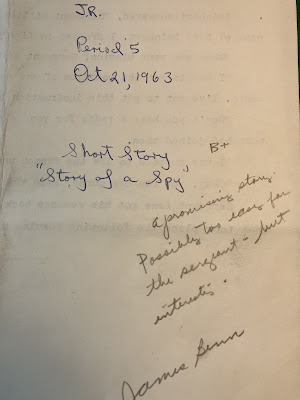 J.R.
Period 5
Oct 21, 1963
Short Story
"Story of a Spy"
B+
a promising story.
Possibly too easy for
the sergeant - but
interests.
James